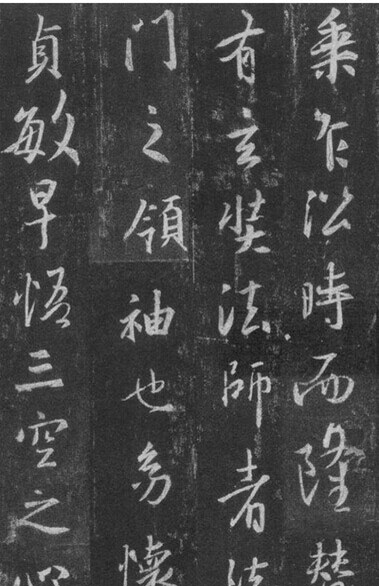 乘乍沿時而隆替
有玄奘法師者法
門之領袖也幼懷
貞敏早悟三空之